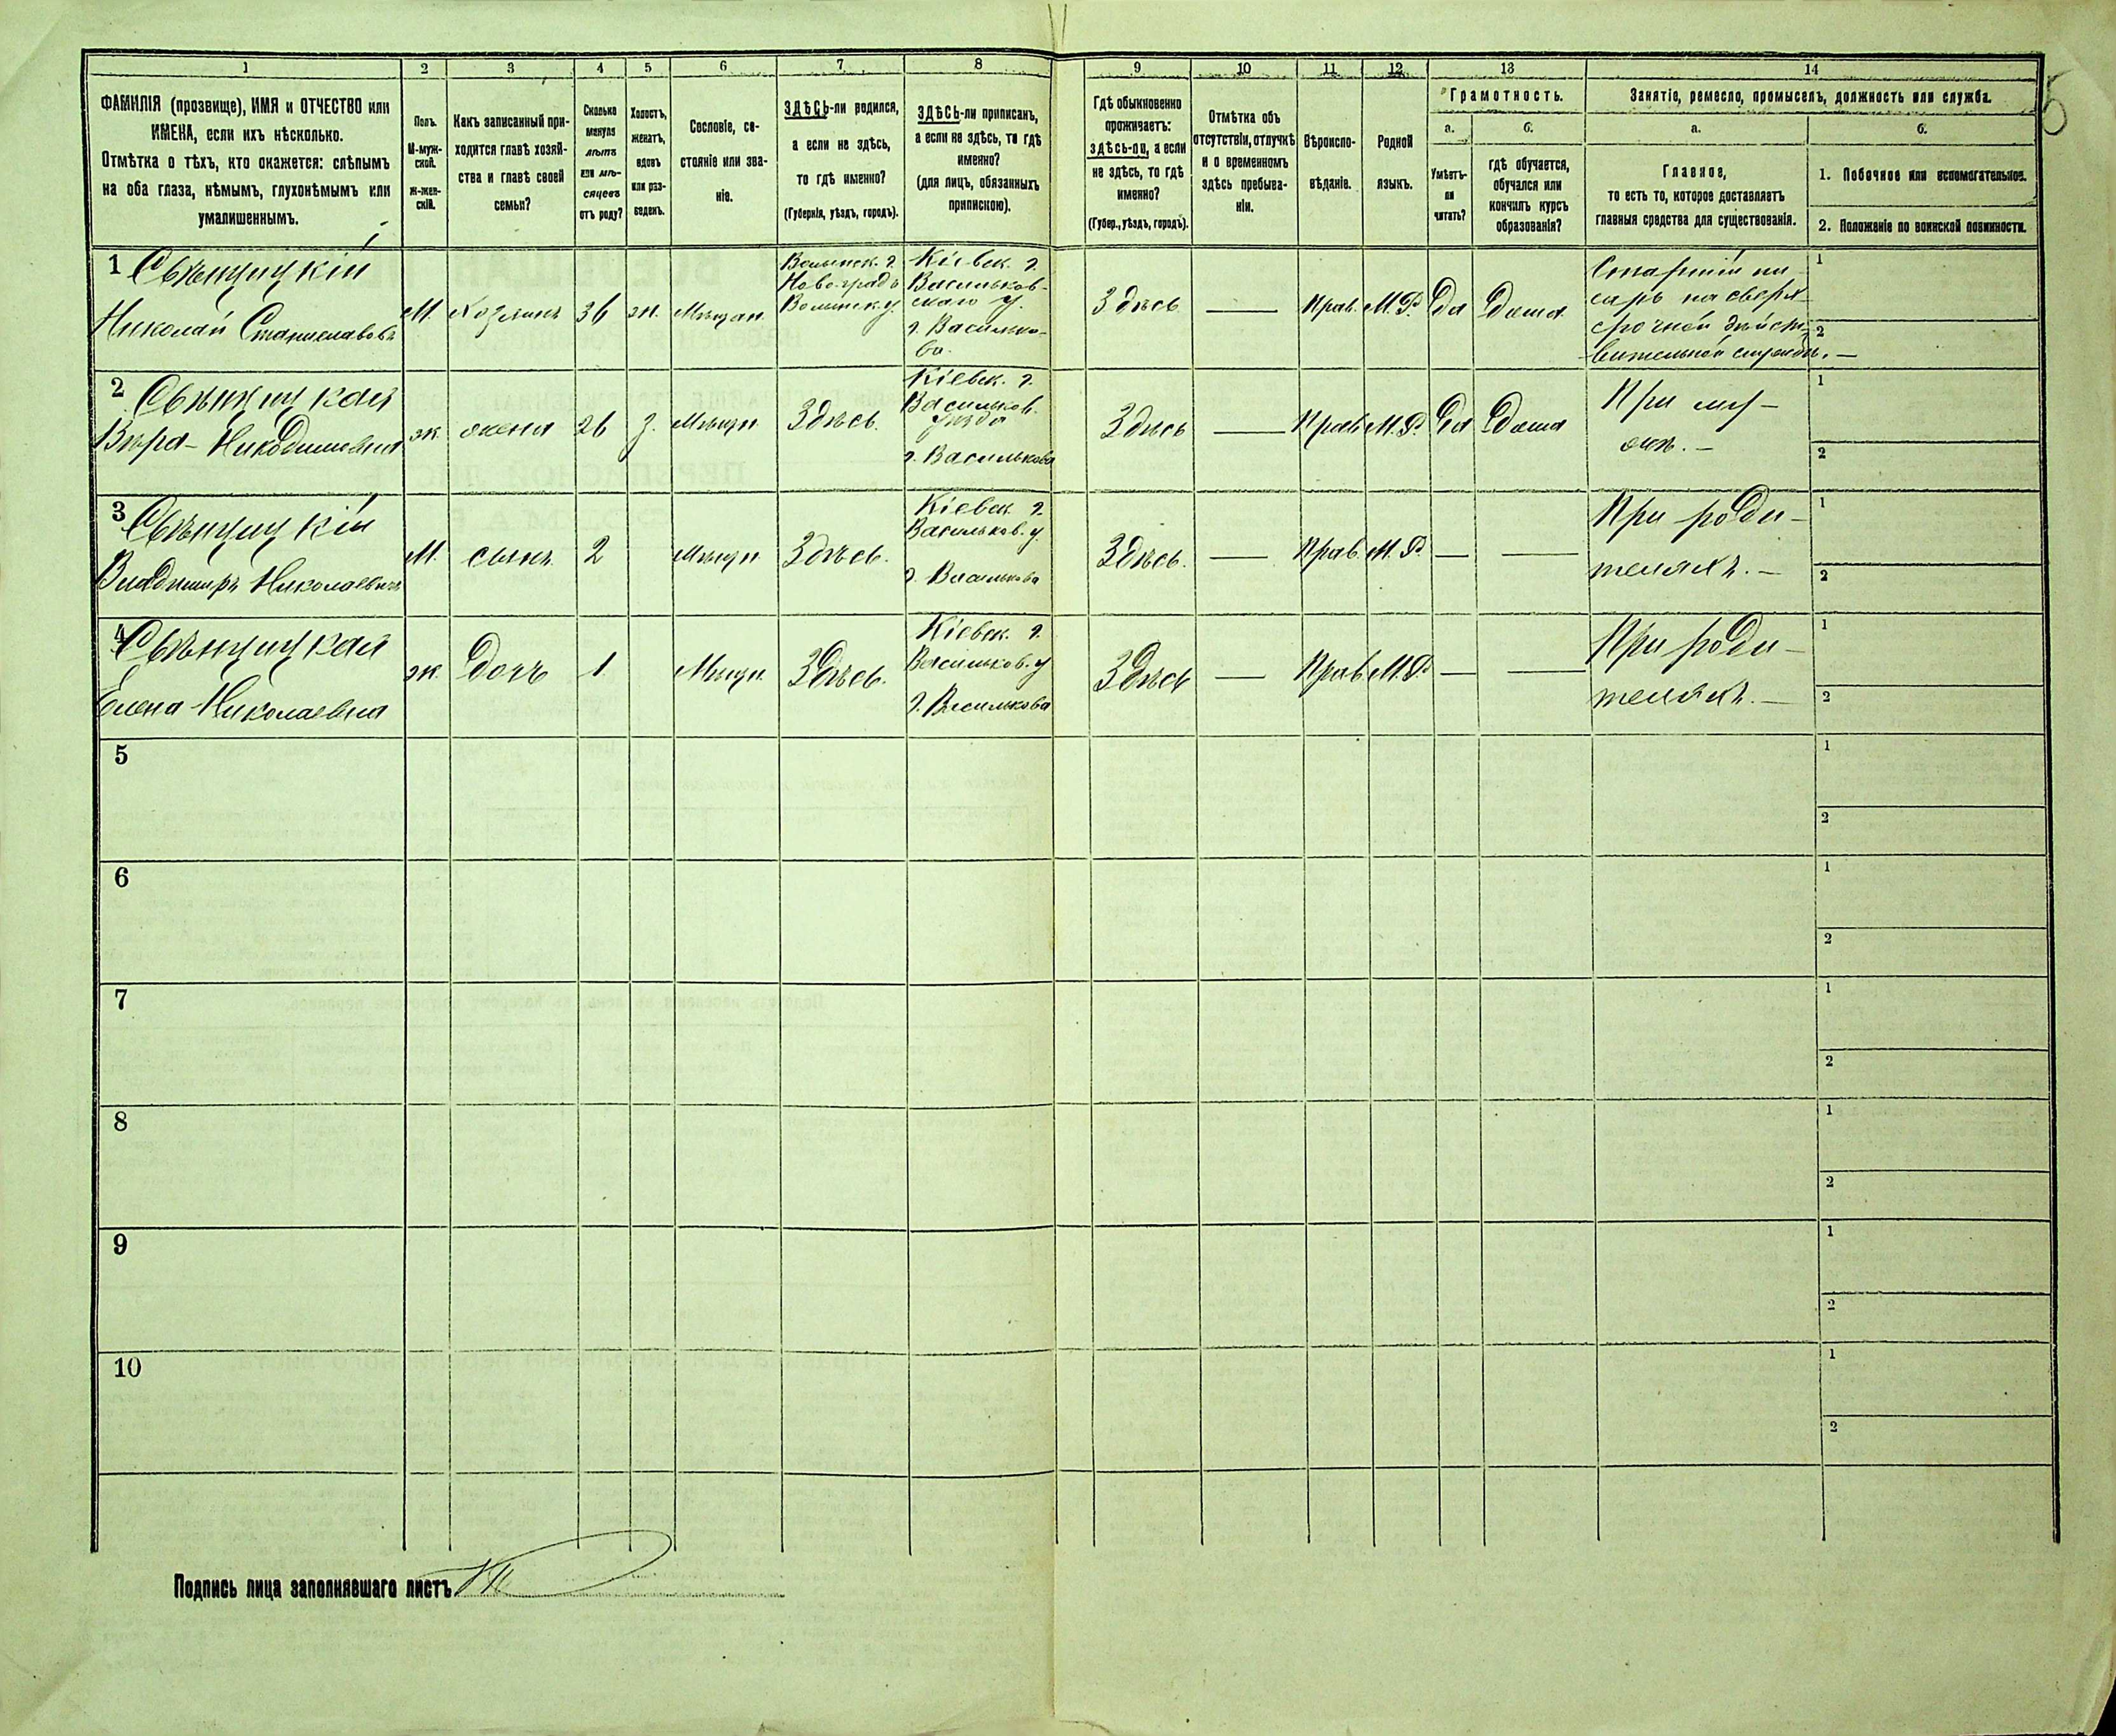 1 2 3 4 5 6 7 8 9 10 11 12 13 14
ФАМИЛІЯ (прозвище), ИМЯ и ОТЧЕСТВО или
ИМЕНА, если ихъ нѣсколько.
Отмѣтка о тѣхъ, кто окажется: слѣпымъ
на оба глаза, нѣмымъ, глухонѣмымъ или
умалишеннымъ.
Полъ.
М-муж-
ской.
Ж-жен-
скій.
Какъ записанный при-
ходится главѣ хозяй-
ства и главѣ своей
семьи?
Сколько
минуло
лѣтъ
или мѣ-
сяцевъ
отъ роду?
Холостъ,
женатъ,
вдовъ
или раз-
веденъ.
Сословіе, со-
стояніе или зва-
ніе.
ЗДѢСЬ-ли родился,
а если не здѣсь,
то гдѣ именно?
(Губернія, уѣздъ, городъ).
ЗДѢСЬ-ли приписанъ,
а если не здѣсь, то гдѣ
именно?
(для лицъ, обязанныхъ
припискою).
Гдѣ обыкновенно
проживаетъ:
здѣсь-ли, а если
не здѣсь, то гдѣ
именно?
(Губер., уѣздъ, городъ).
Отмѣтка объ
отсутствіи, отлучкѣ
и о временномъ
здѣсь пребыва-
ніи.
Вѣроиспо-
вѣданіе.
Родной
языкъ.
Грамотность.
а.
Умѣетъ-
ли
читать?
б.
гдѣ обучается,
обучался или
кончилъ курсъ
образованія?
Занятіе, ремесло, промыселъ, должность или служба.
а.
Главное,
то есть то, которое доставляетъ
главныя средства для существованія.
б.
1. Побочное или вспомогательное.
2. Положеніе по воинской повинности.
1 Свѣнцицкій
Николай Станиславовъ
М.
Хозяинъ
36
ж.
Мѣщан.
Волынск. г.
Новоградъ
Волынск. у.
Кіевск. г.
Васильков-
скаго у.
г. Василько-
ва.
Здѣсь
—
Прав.
М. Р.
да
дома
Старшій пи-
сарь на сверх-
срочной дѣйст-
вительной службѣ. —
1
2
2 Свѣнцицкая
Вѣра Никодимовна
ж.
жена
26
з.
Мѣщн.
Здѣсь.
Кіевск. г.
Васильков.
уѣзда
г. Василькова
Здѣсь
—
Прав.
М. Р.
да
дома
При му-
жѣ. —
1
2
3 Свѣнцицкій
Владиміръ Николаевичъ
М.
сынъ
2
Мѣщн.
Здѣсь.
Кіевск. г.
Васильков. у.
г. Василькова
Здѣсь.
—
Прав.
М. Р.
—
—
При роди-
теляхъ. —
1
2
4 Свѣнцицкая
Елена Николаевна
ж.
дочь
1.
Мѣщн.
Здѣсь.
Кіевск. г.
Васильков. у
г. Василькова
Здѣсь
—
Прав.
М. Р.
—
—
При роди-
теляхъ. —
1
2
5
1
2
6
1
2
7
1
2
8
1
2
9
1
2
10
1
2
Подпись лица заполнявшаго листъ